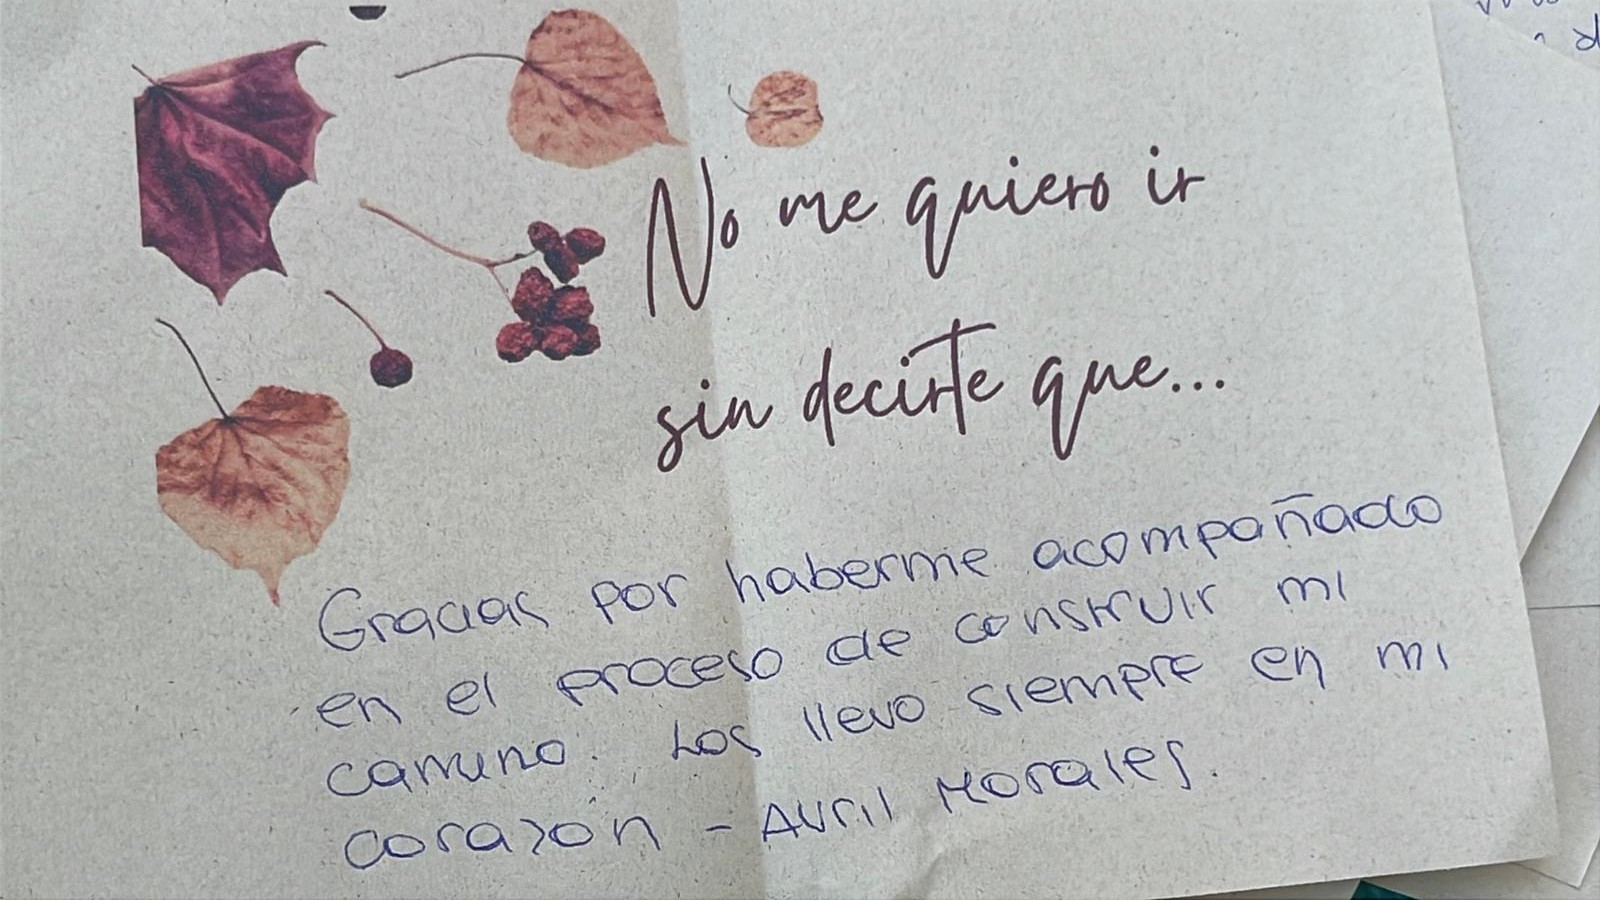 No me quiero ir
sin decirte que...
Gracias por haberme acompañado
en el proceso de construir mi
camino. Los llevo siempre en mi
corazón - Avril Morales.